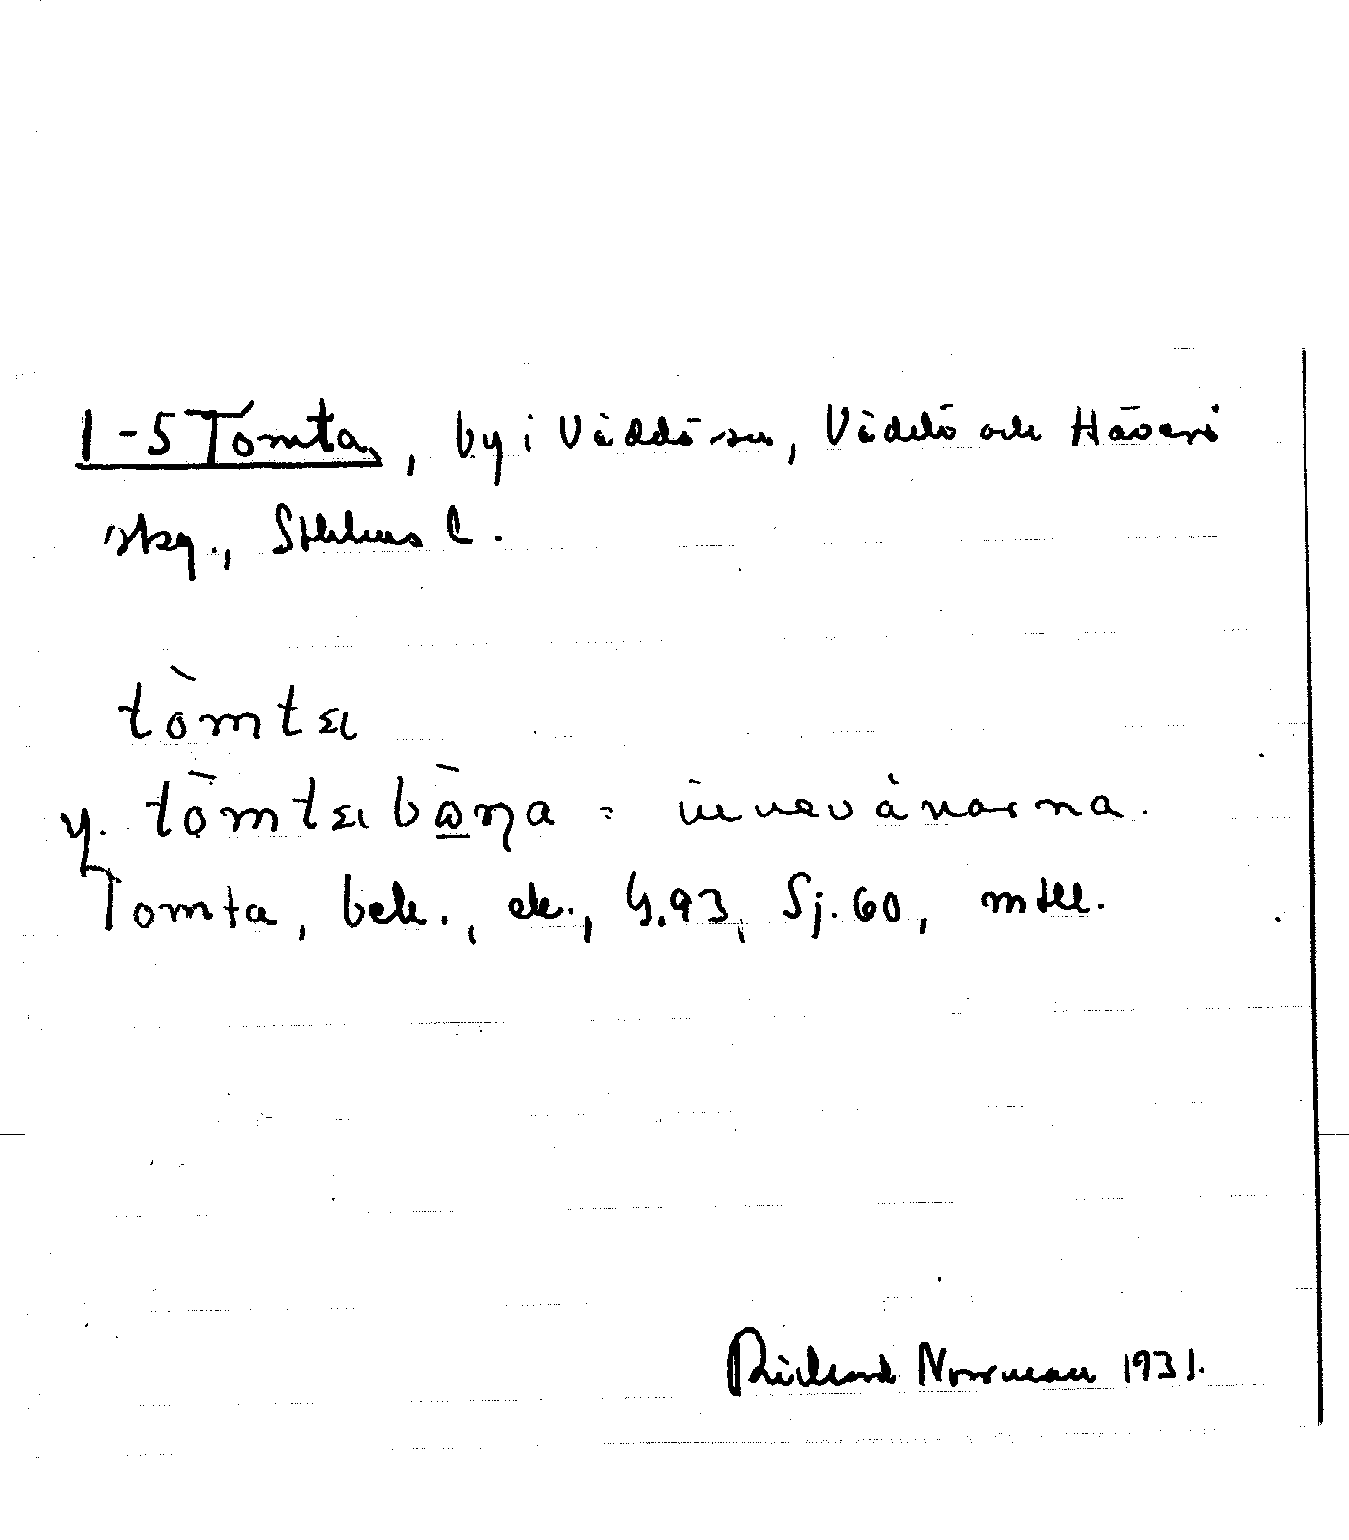 1-5 Tomta, by i Väddö sn, Väddö och Häverö
skg., Sthlms l.
tòmta
y. tòmtabò̱ŋa = innevånarna.
Tomta, bek., ek., G.93, Sj.60, mtll.
Rickard Norrman 1931.